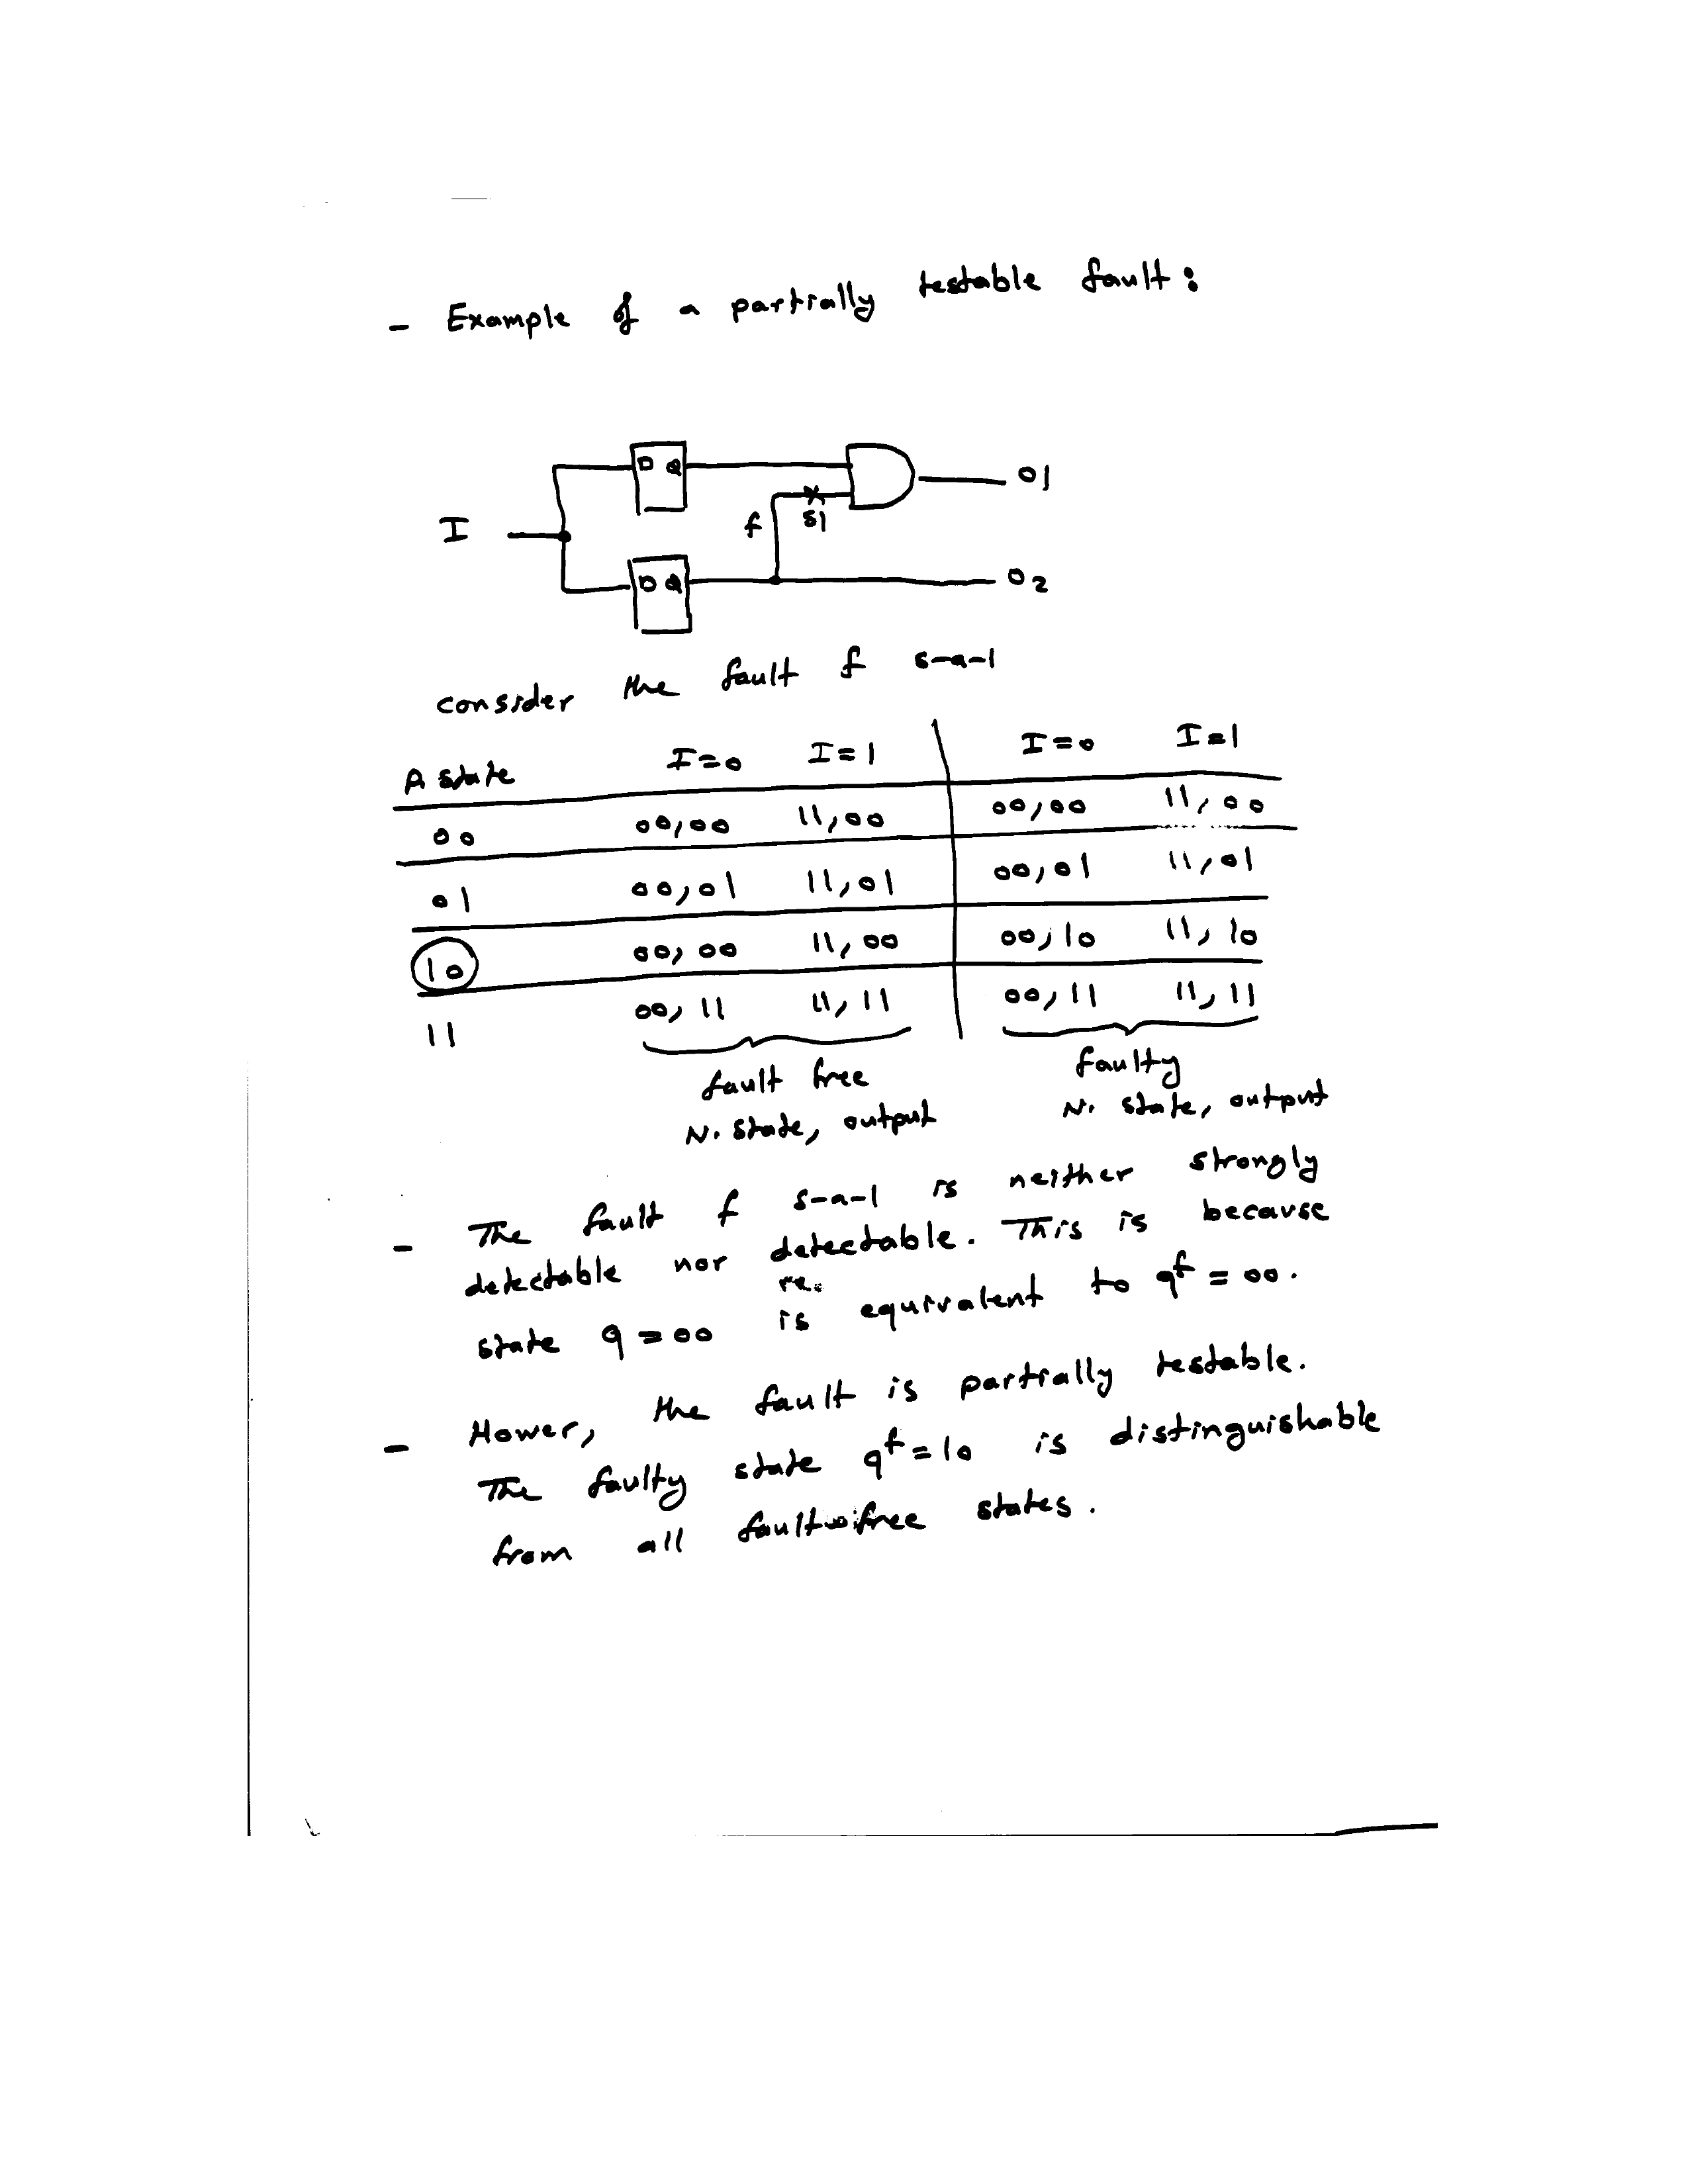 - Example of a partially testable fault:
D Q
O1
I
f
S1
D Q
O2
consider the fault f s-a-1
A state I=0 I=1 I=0 I=1
00 00,00 11,00 00,00 11,00
01 00,01 11,01 00,01 11,01
10 00,00 11,00 00,10 11,10
11 00,11 11,11 00,11 11,11
fault free faulty
N. state, output N. state, output
- The fault f s-a-1 is neither strongly
detectable nor detectable. This is because
state q=00 is equivalent to q^f = 00.
- Hower, the fault is partially testable.
The faulty state q^f = 10 is distinguishable
from all fault free states.